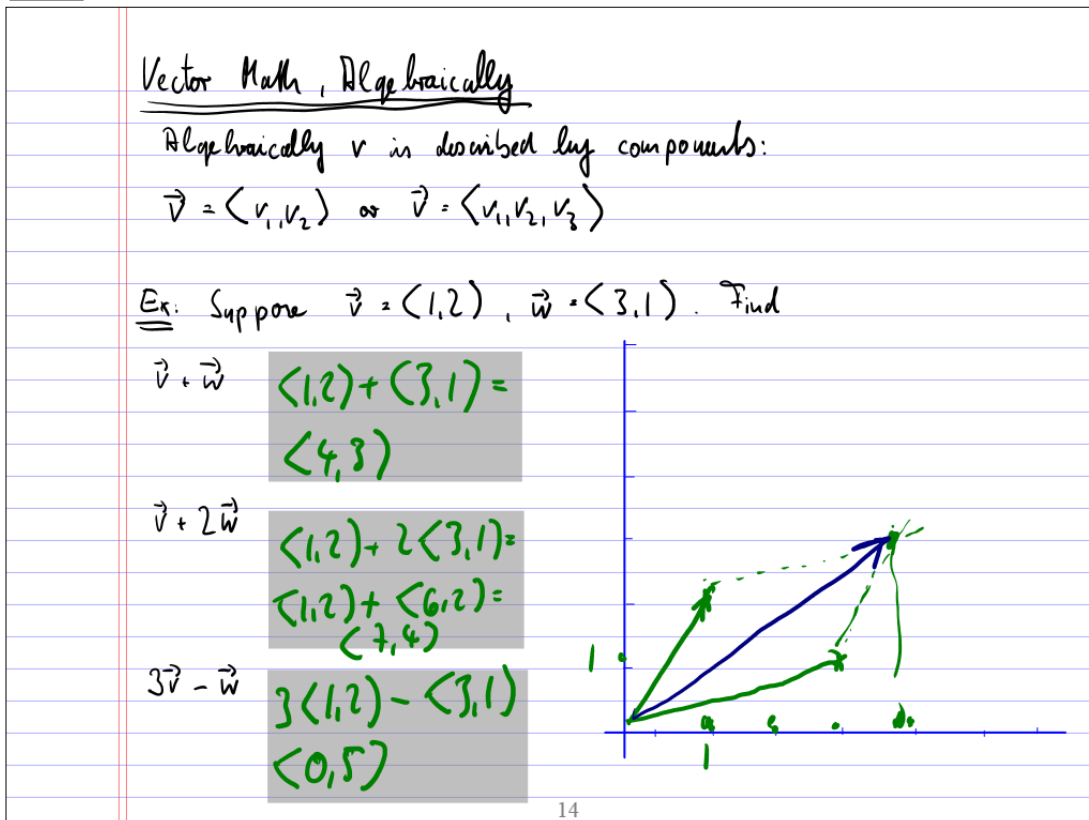 Vector Math, Algebraically
Algebraically v is described by components:
v⃗ = ⟨v₁, v₂⟩ or v⃗ = ⟨v₁, v₂, v₃⟩
Ex: Suppose v⃗ = ⟨1,2⟩, w⃗ = ⟨3,1⟩. Find
v⃗ + w⃗
⟨1,2⟩ + ⟨3,1⟩ =
⟨4,3⟩
v⃗ + 2w⃗
⟨1,2⟩ + 2⟨3,1⟩ =
⟨1,2⟩ + ⟨6,2⟩ =
⟨7,4⟩
3v⃗ - w⃗
3⟨1,2⟩ - ⟨3,1⟩
⟨0,5⟩
1
1
14